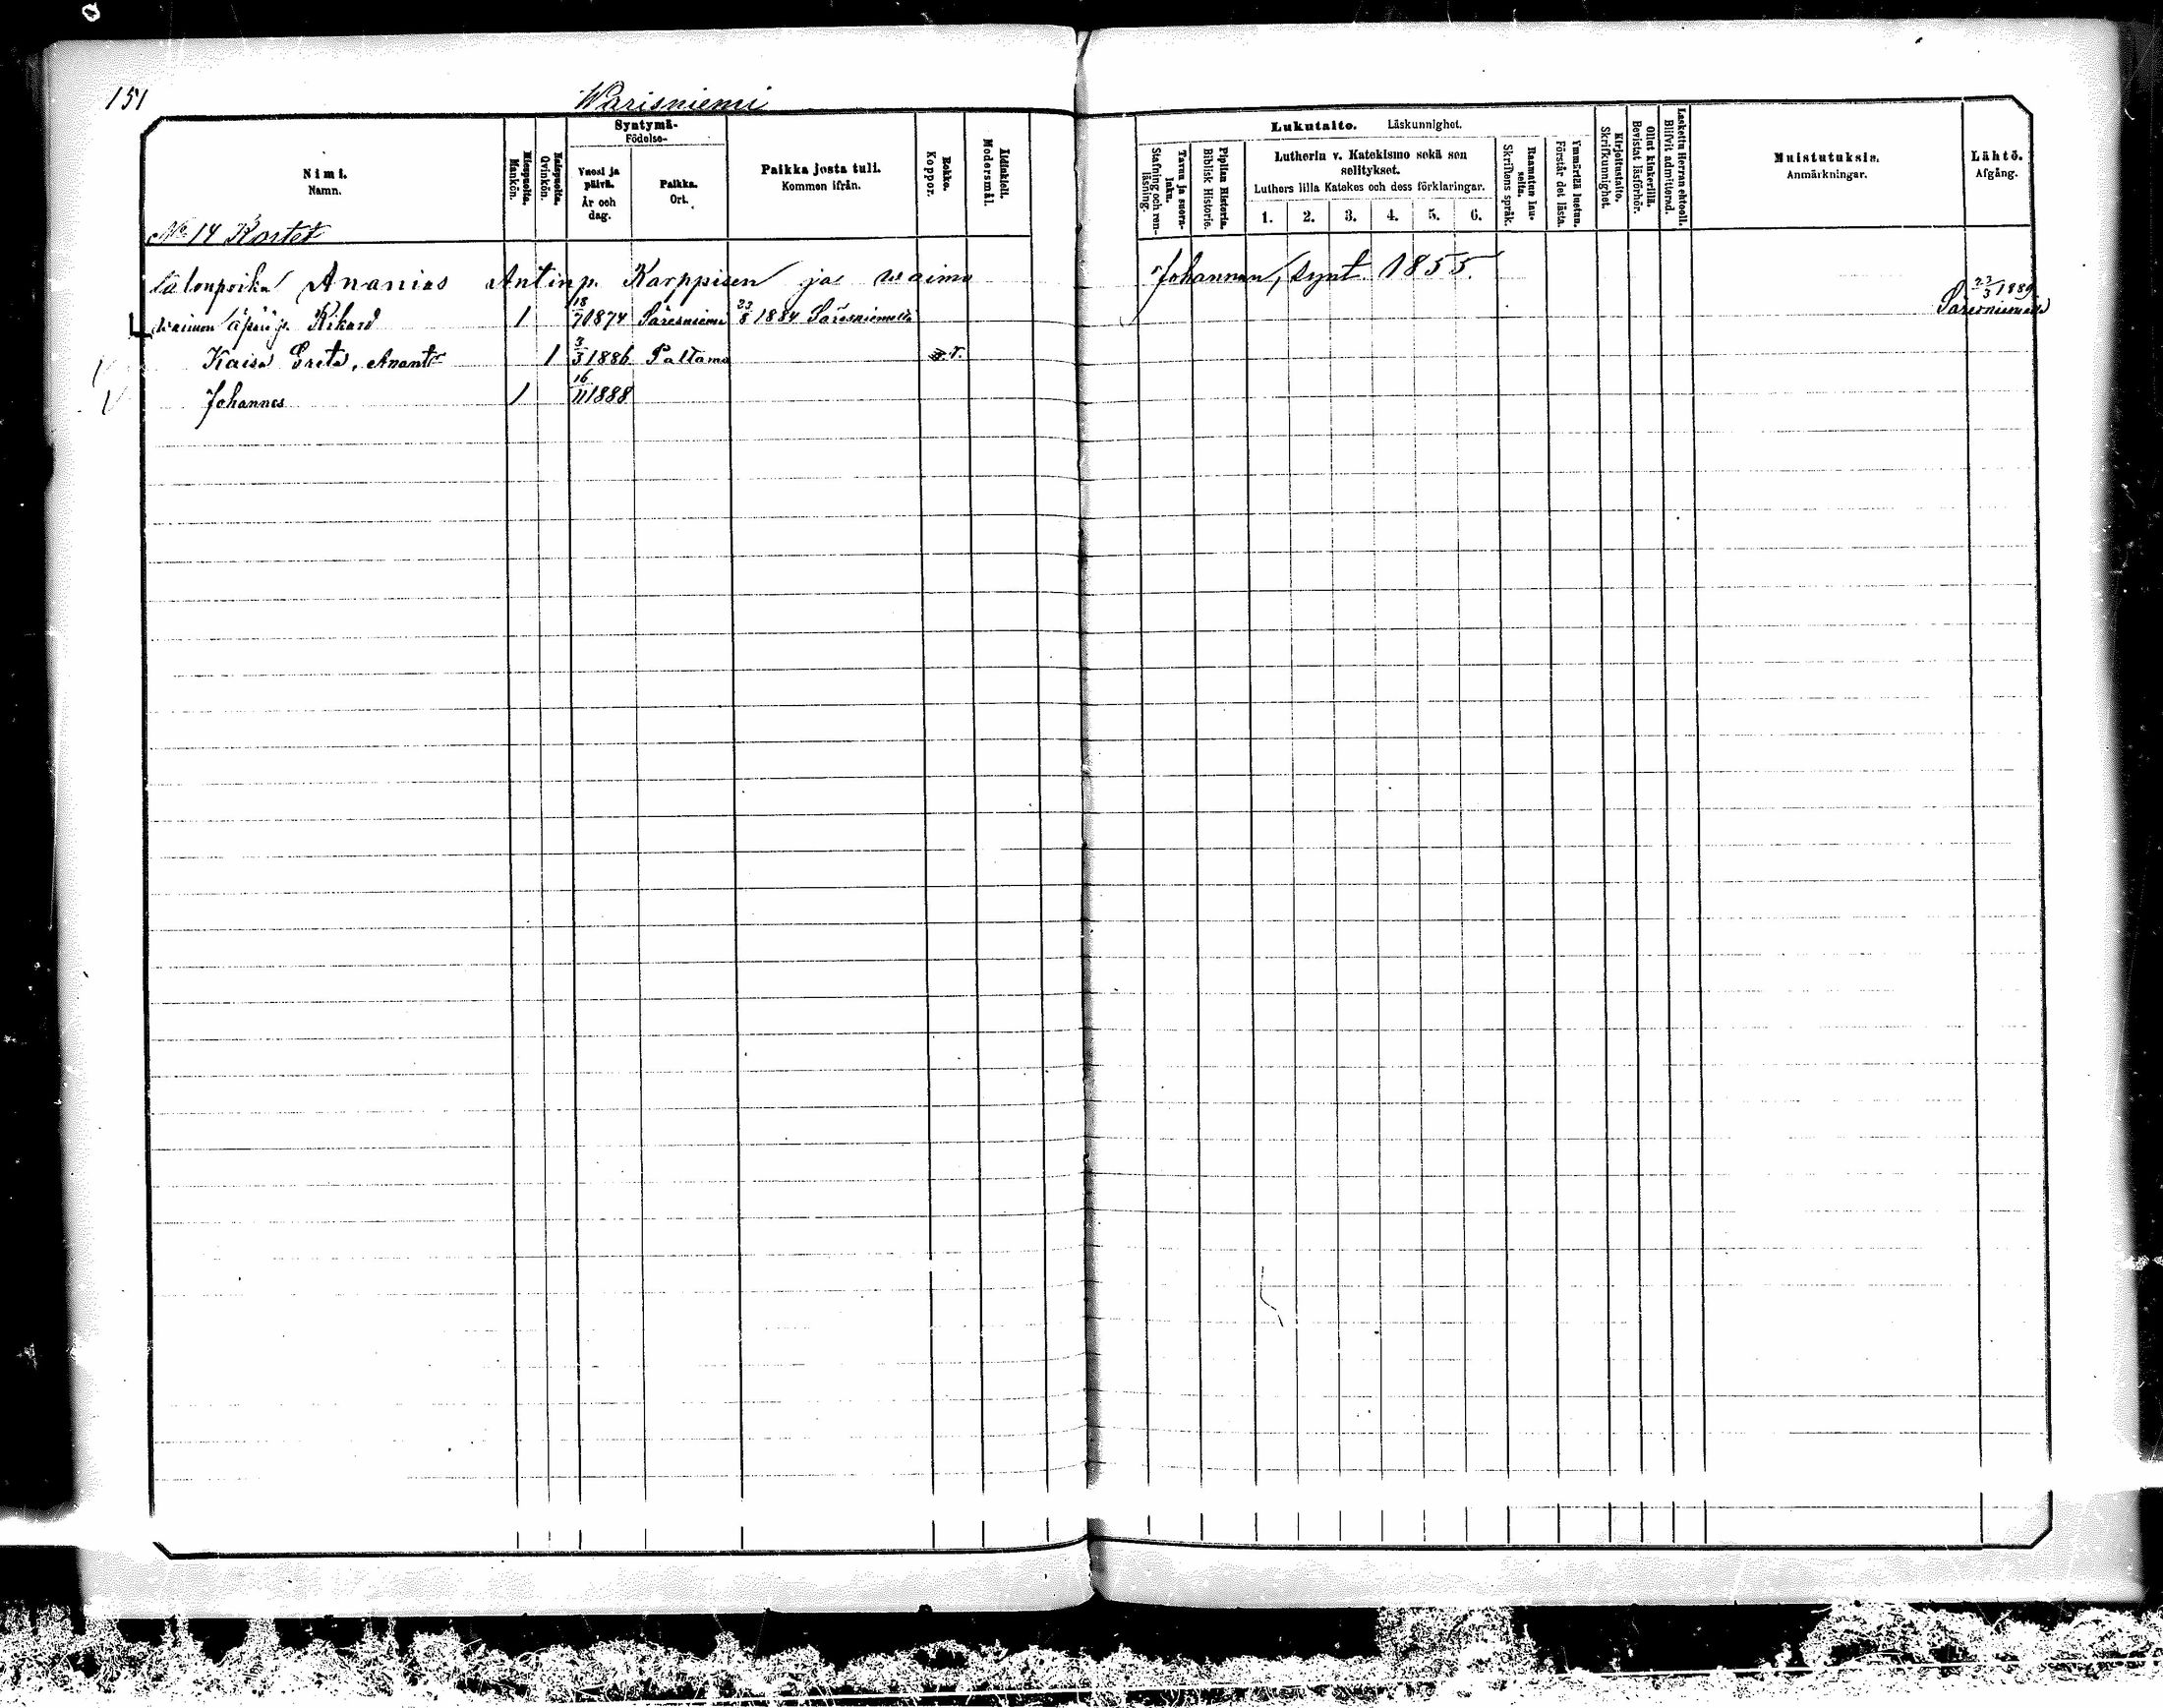 151
Warisniemi
Nimi.
Namn.
Miespuolia.
Mankön.
Naispuolia.
Qvinkön.
Syntymä-
Födelse-
Vuosi ja päivä.
År och dag.
Paikka.
Ort.
Paikka josta tuli.
Kommen ifrån.
Rokko.
Koppor.
Äidinkieli.
Modersmål.
Lukutaito. Läskunnighet.
Tavuu ja suora-luku.
Stafning och ren-läsning.
Piplian Historia.
Biblisk Historie.
Lutherin v. Katekismo sekä sen selitykset.
Luthers lilla Katekes och dess förklaringar.
1. 2. 3. 4. 5. 6.
Raamatun lau-seita.
Skriftens språk.
Ymmärtää luetun.
Förstår det lästa.
Kirjoitustaito.
Skrifkunnighet.
Ollut kinkerillä.
Bevistat läsförhör.
Laskettu Herran ehtooll.
Blifvit admitterad.
Muistutuksia.
Anmärkningar.
Lähtö.
Afgång.
No 14 Kortet
talonpoika Ananias Antinp. Karppisen ja waimo Johannan, synt 1855.
waimon äpäräp. Rikard 1 18/7 1874 Säresniemi 23/8 1884 Säresniemeltä 22/3 1889 Säresniemelle
Kaisa Greta, Anant 1 3/3 1886 Paltamo r.
Johannes 1 16/11 1888